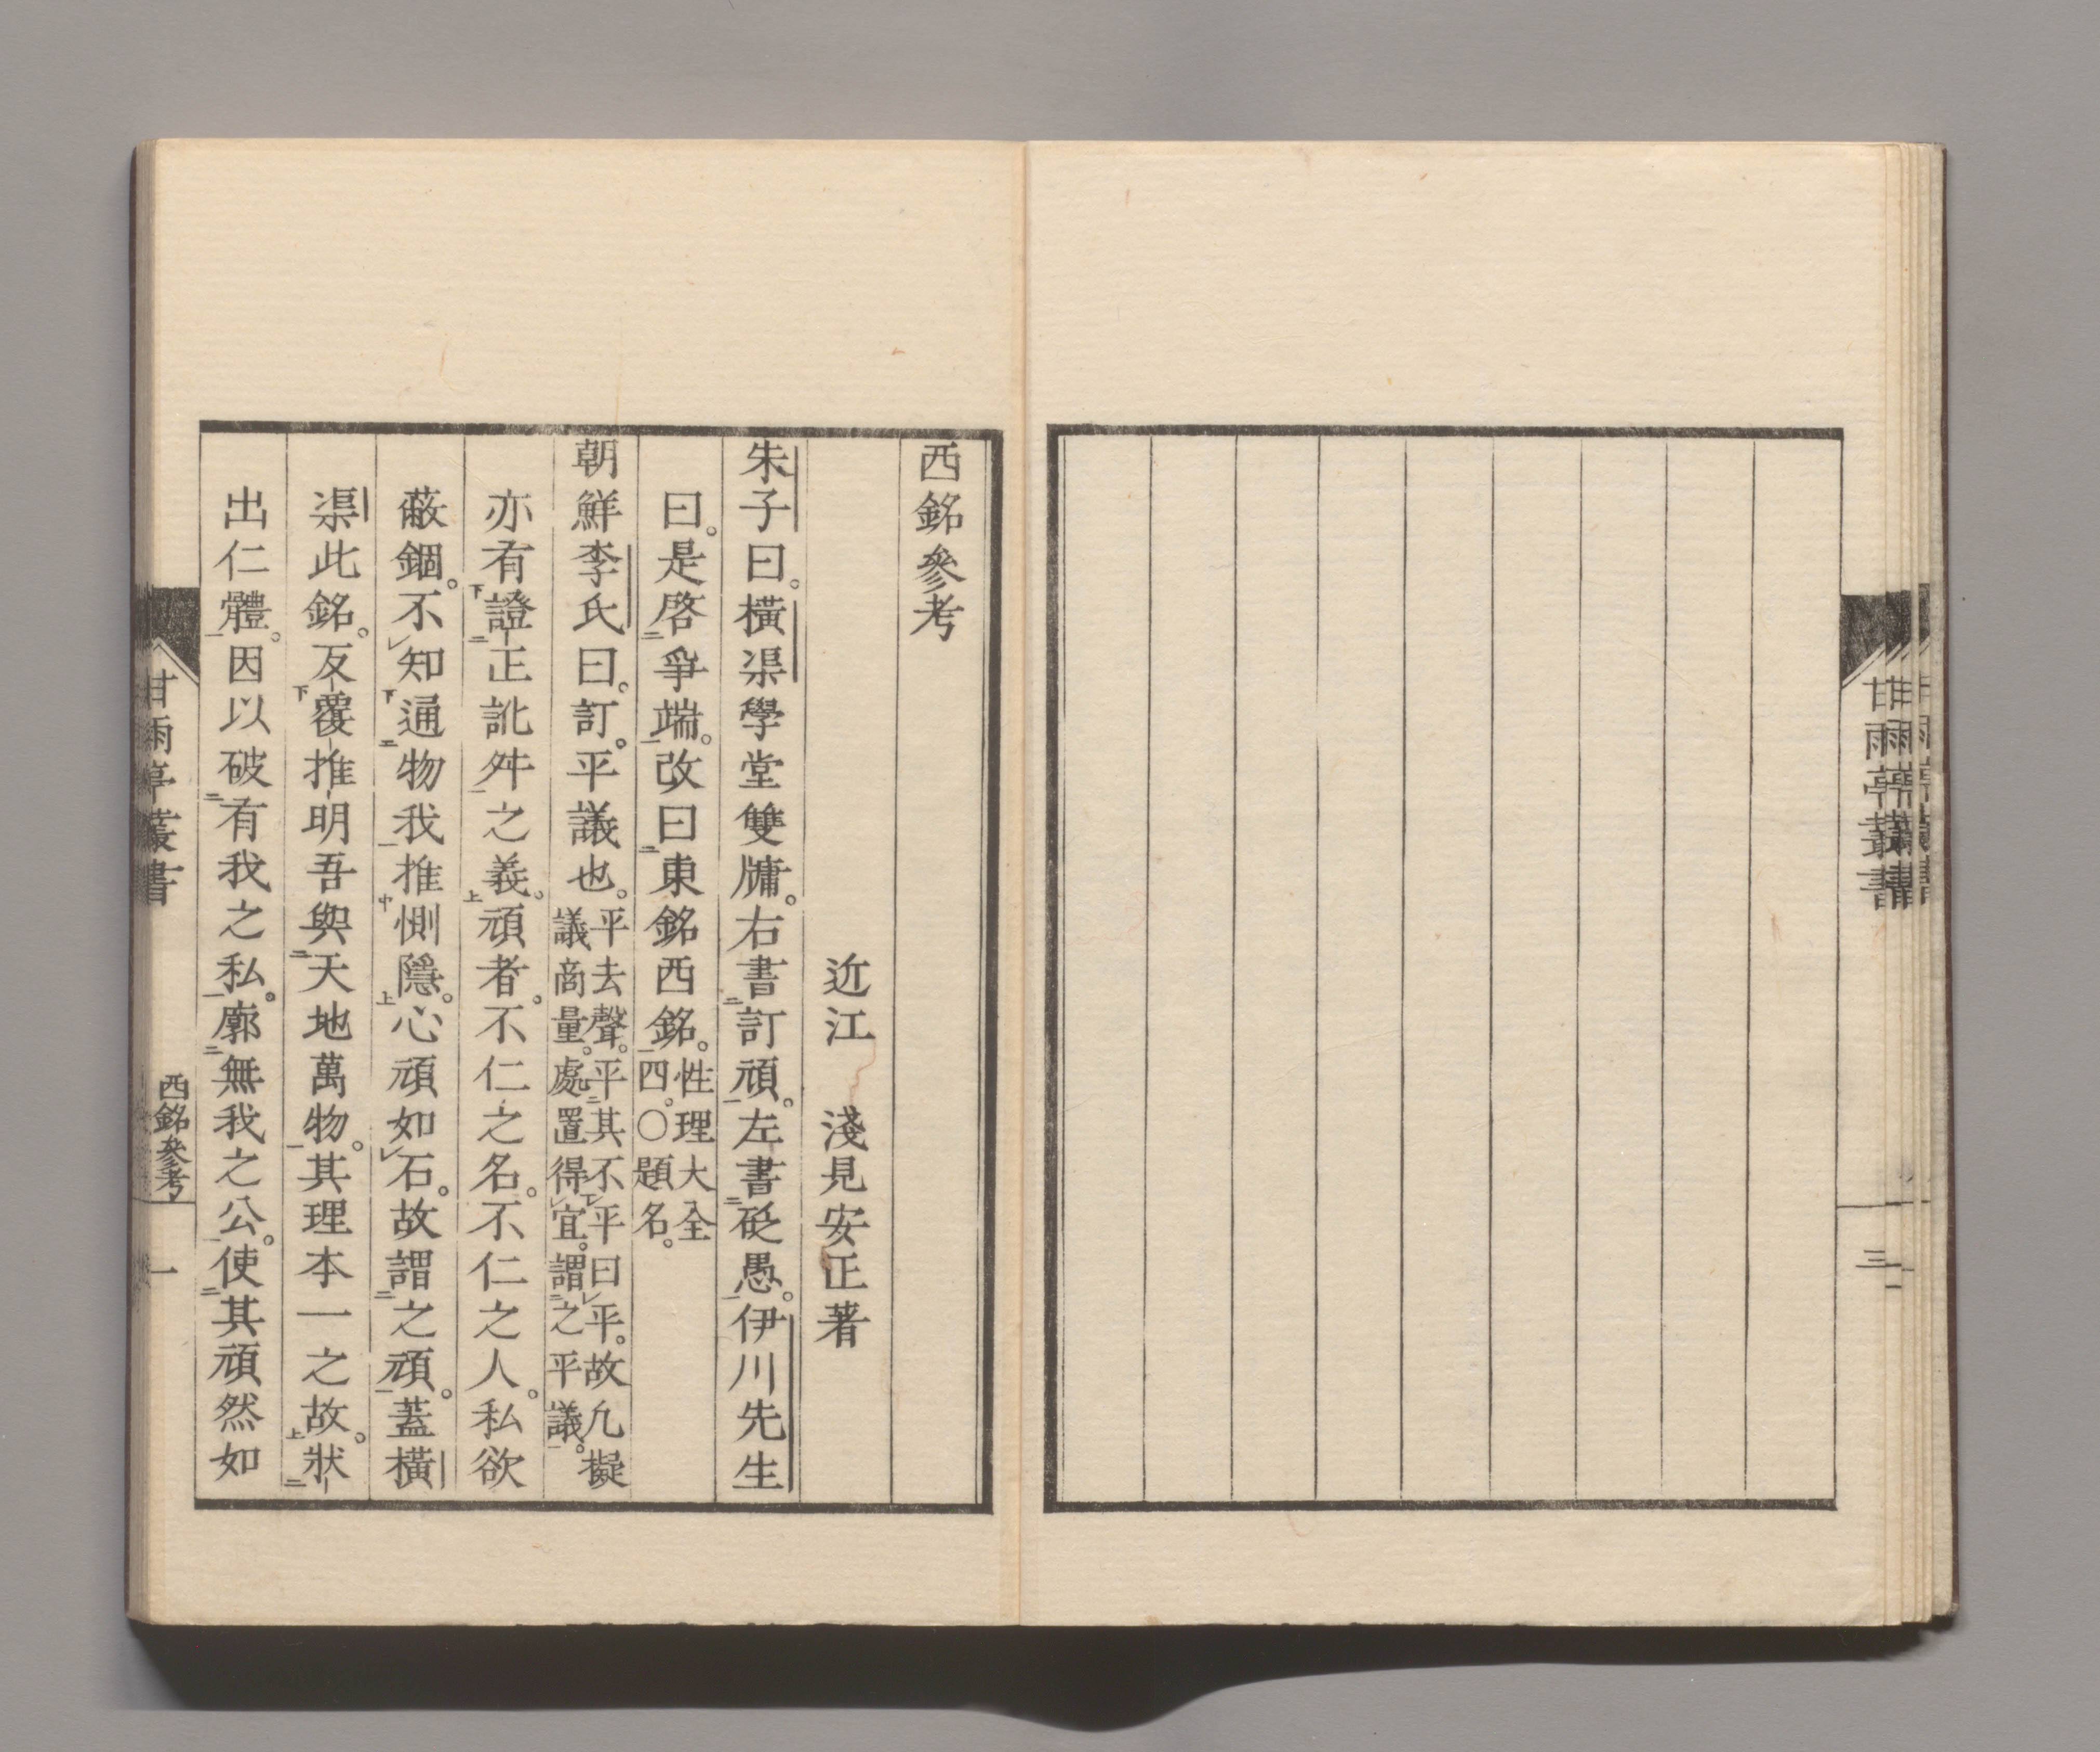 甘雨亭叢書
三
西銘參考
近江 淺見安正著
朱子曰。橫渠學堂雙牖。右書訂頑。左書砭愚。伊川先生
曰。是啓爭端。改曰東銘西銘。性理大全
四。〇題名。
朝鮮李氏曰。訂。平議也。平去聲。平其不平曰平。故凢擬
議商量。處置得宜。謂之平議。
亦有證正訛舛之義。頑者。不仁之名。不仁之人。私欲
蔽錮。不知通物我推惻隱。心頑如石。故謂之頑。蓋橫
渠此銘。反覆推明吾與天地萬物。其理本一之故。狀
出仁體。因以破有我之私。廓無我之公。使其頑然如
甘雨亭叢書
西銘參考
一